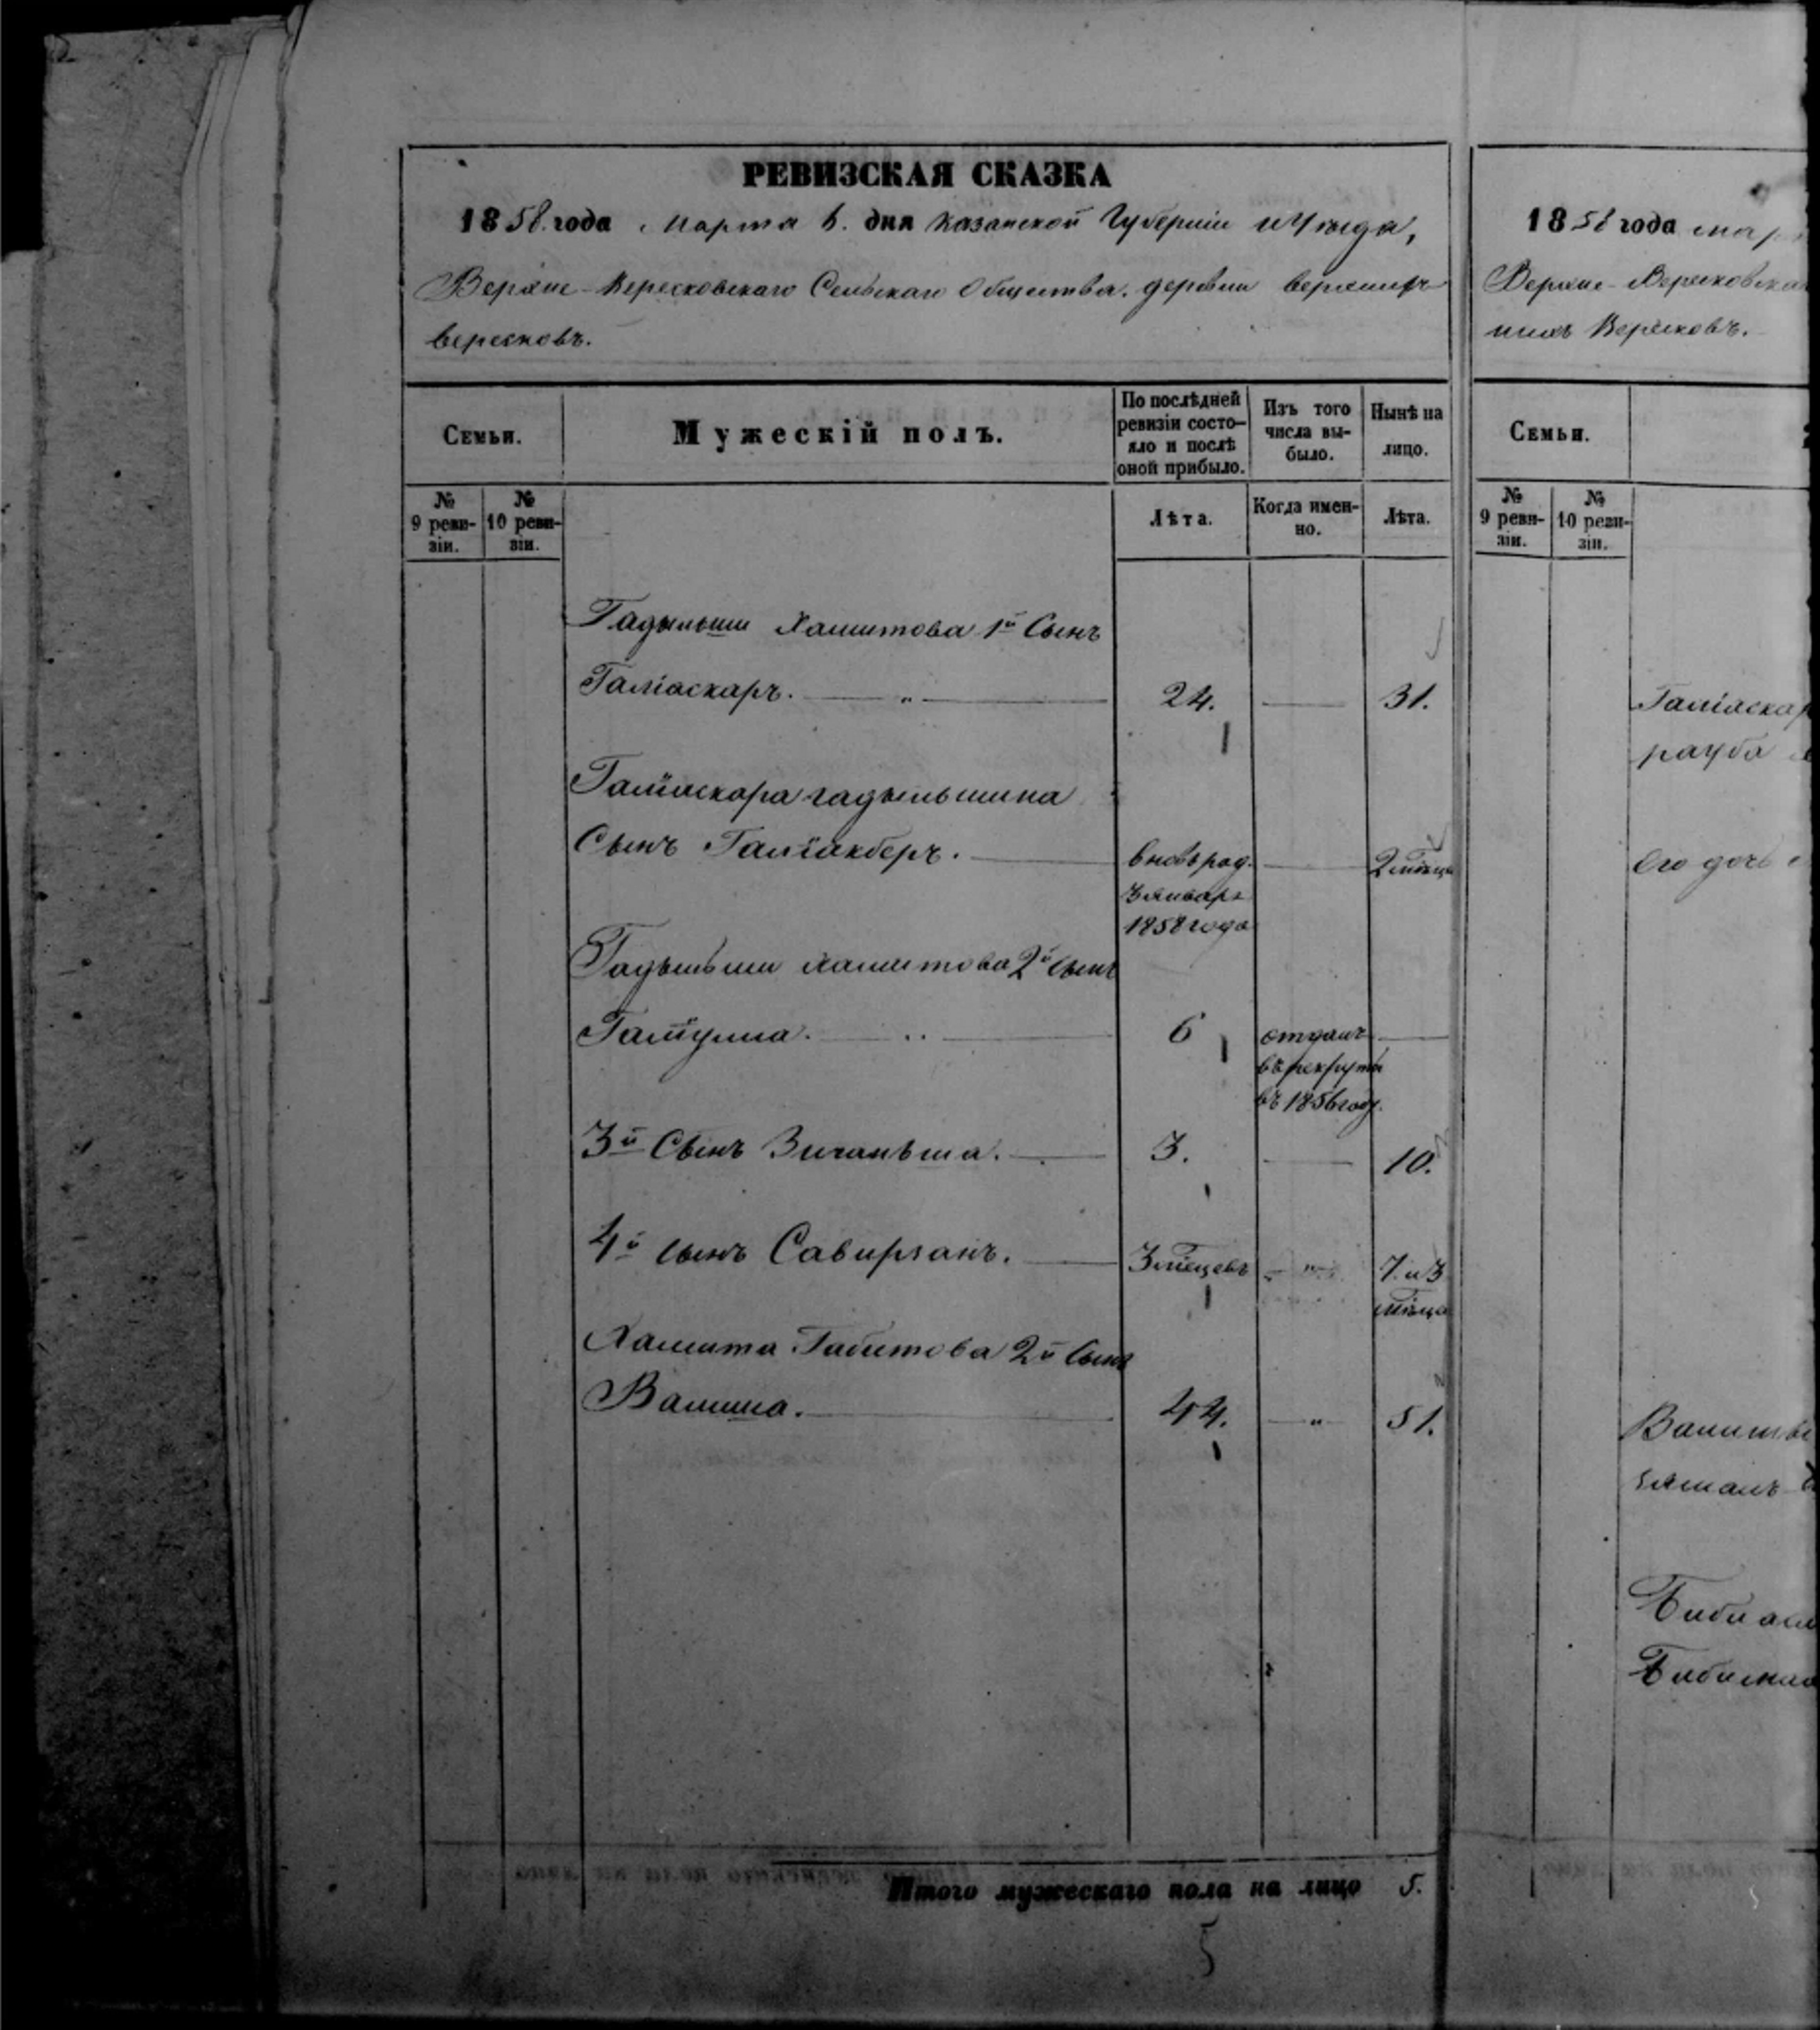 РЕВИЗСКАЯ СКАЗКА
1858 года Марта 6. дня Казанской Губернии и Уезда,
Верхне-Вересковскаго Сельскаго Общества. деревни верхнихъ
вересковъ.
Семьи.
Мужескій полъ.
По послѣдней ревизіи состо-
яло и послѣ оной прибыло.
Изъ того числа вы-
было.
Нынѣ на лицо.
№ 9 реви-
зіи.
№ 10 реви-
зіи.
Лѣта.
Когда имен-
но.
Лѣта.
Гадыльши Хамитова 1й Сынъ
Галіаскаръ. 24. 31.
Галіаскара гадыльшина
Сынъ Галіакберъ. вновь род. 2 мѣсяца
3 январь
1858 года
Гадыльши хамитова 2й Сынъ
Галіулла. 6 отданъ
въ рекруты
въ 1856 году.
3й Сынъ Зиганьша. 3. 10.
4й сынъ Сабирзанъ. 3 мѣсяцевъ 7. и 3
мѣсяца
Хамита Габитова 2й Сынъ
Валиша. 44. " 51.
Итого мужескаго пола на лицо 5.
5
1858 года мар
Верхне-Вересковска
нихъ Вересковъ.
Семьи.
№ 9 реви-
зіи.
№ 10 реви-
зіи.
Галіаскар
рауба
Его дочь